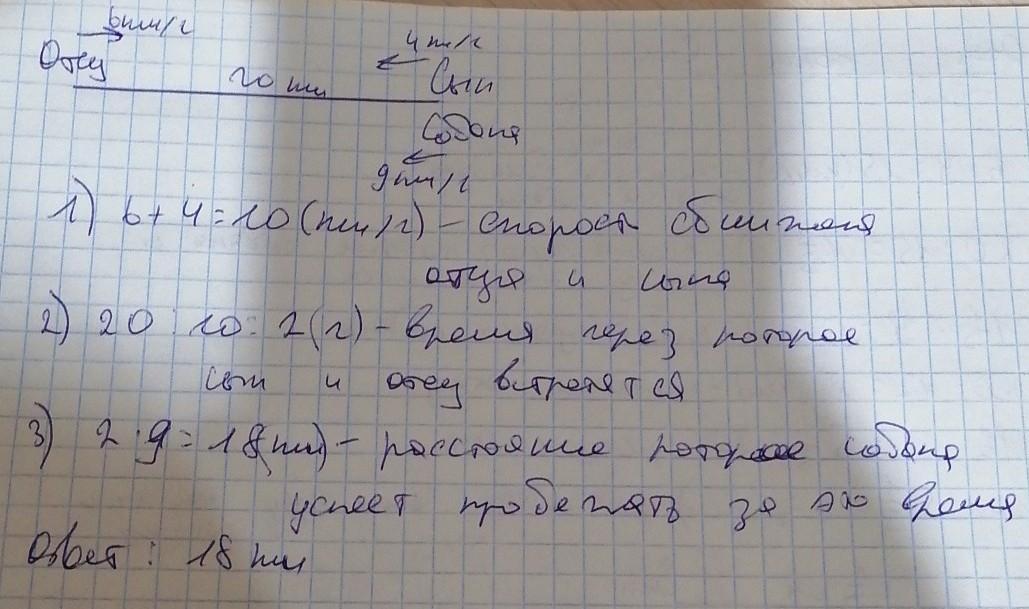 6 км/ч
4 км/ч
Отец 20 км Сын
Собака
9 км/ч
1) 6 + 4 = 10 (км/ч) - скорость сближения
отца и сына
2) 20 : 10 = 2 (ч) - время через которое
сын и отец встретятся
3) 2 · 9 = 18 (км) - расстояние которое собака
успеет пробежать за это время
Ответ : 18 км